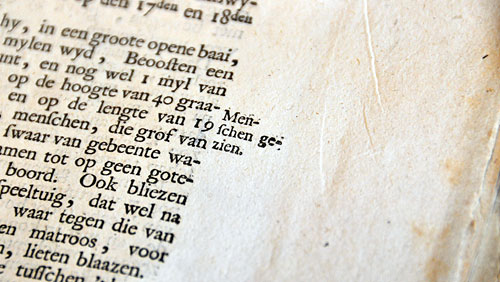 op den 17den en 18den
hy, in een groote opene baai,
mylen wyd, Beooſten een
nt, en nog wel 1 myl van
op de hoogte van 40 graa-
en op de lengte van 19
Men-
ſchen ge-
zien.
menſchen, die grof van
ſwaar van gebeente wa-
amen tot op geen gote-
boord. Ook bliezen
peeltuig, dat wel na
waar tegen die van
en matroos, voor
n, lieten blaazen.
e tuſſchen